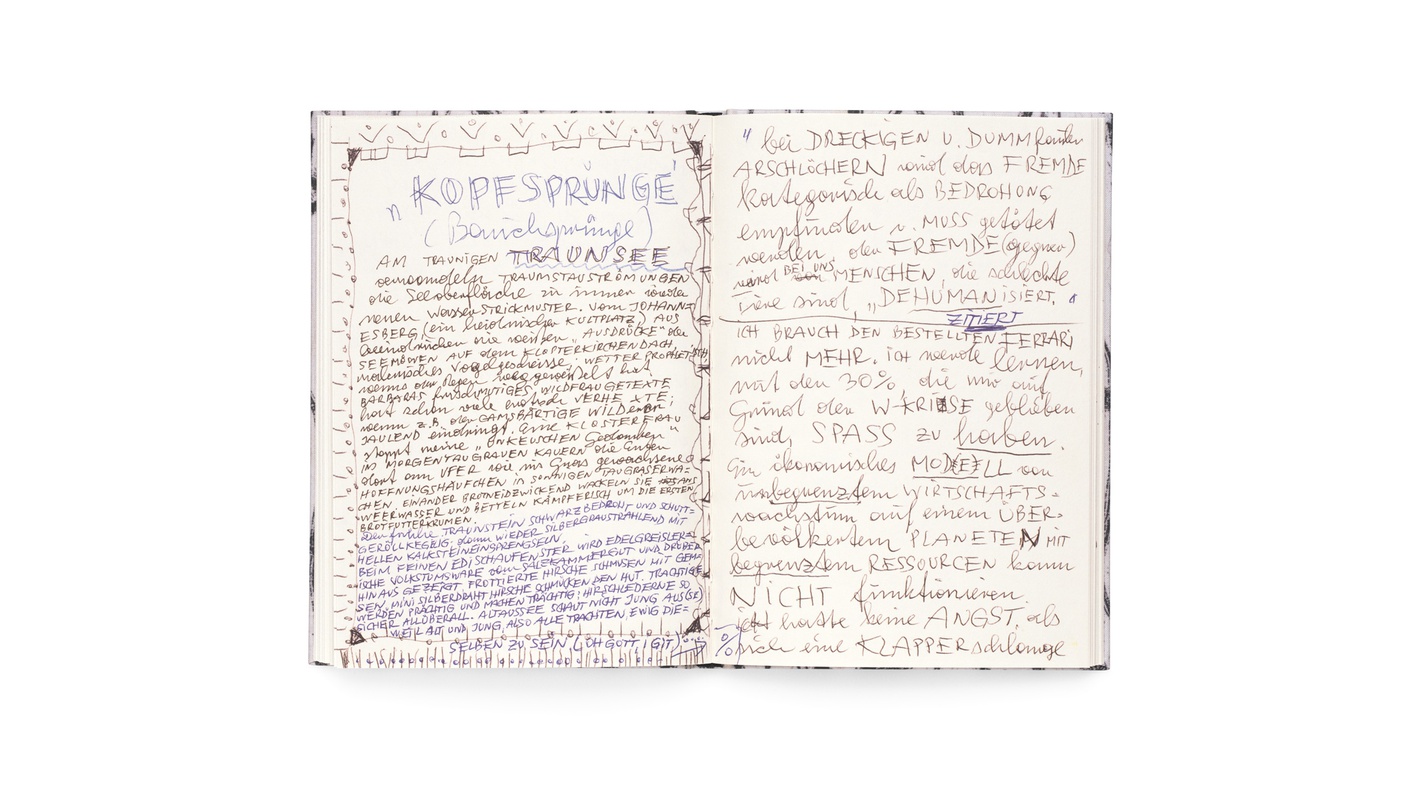 „KOPFSPRÜNGE"
(Bauchsprünge)
AM TRAUNIGEN TRAUNSEE
verwandeln TRAUMSTAUSTRÖMUNGEN
die Seeoberfläche zu immer wieder
neuen WasserSTRICKMUSTER. Vom JOHANN-
ESBERG (ein heidnischer KULTPLATZ) AUS
beeindrucken die weißen „AUSDRÜCKE" der
SEEMÖWEN AUF dem KLOSTERKIRCHENDACH,
malerisches Vogelgescheisse; WETTERPROPHETISCH,
wenns der Regen
BARBARAS frischmutiges, WILDFRAUGETEXTE
hat schon viele erotisch VERHEXTE;
wenn z.B. der GAMSBÄRTIGE WILDerer
JAULEND eindringt. Eine KLOSTERFRAU
stoppt meine „UNKEUSCHEN Gedanken"
IM MORGENTAUGRAUEN KAUERN die Enten
dort am UFER wie im Gras gewachsene
HOFFNUNGSHÄUFCHEN IN SONNIGEN TAUGRASERWA-
CHEN. EINANDER BROTNEIDZWICKEND WACKELN SIE ANS
WEERWASSER UND BETTELN KÄMPFERISCH UM DIE ERSTEN
BROTFUTTERKRUMEN.
Der frühere TRAUNSTEIN SCHWARZBEDROHT UND SCHUTT-
GERÖLLKEGLIG, dann WIEDER SILBERGRAUSTRAHLEND MIT
HELLEN KALKSTEINEINSPRENGSELN.
BEIM FEINEN EDISCHAUFENSTER WIRD EDELGREISLER-
ISCHE VOLKSTUMSWARE dem SALZKAMMERGUT UND DRÜBER
HINAUS GEZEIGT. FROTTIERTE HIRSCHE SCHMUSEN MIT GEM-
SEN. MINI SILBERDRAHT HIRSCHE SCHMÜCKEN DEN HUT. TRÄCHTIGE
WERDEN PRÄCHTIG UND MACHEN TRÄCHTIG; HIRSCHLEDERNE SO
SICHER ALLÜBERALL. ALTAUSSEE SCHAUT NICHT JUNG AUS(SE)
WEIL ALT UND JUNG, ALSO ALLE TRACHTEN, EWIG DIE-
SELBEN ZU SEIN (OH GOTT, I GIT)
" bei DRECKIGEN U. DUMM
ARSCHLÖCHERN wird das FREMDE
kategorisch als BEDROHUNG
empfunden u. MUSS getötet
werden, der FREMDE(gegner)
wird BEI UNS MENSCHEN, die schlechte
Tiere sind, „DEHUMANISIERT. "
ZITIERT
ICH BRAUCH DEN BESTELLTEN FERRARI
nicht MEHR. ICH werde lernen,
mit den 30%, die mir auf
Grund der W-KRISE geblieben
sind, SPASS zu haben.
Ein ökonomisches MODELL von
unbegrenztem WIRTSCHAFTS-
wachstum auf einem ÜBER-
bevölkertem PLANETEN MIT
begrenztem RESSOURCEN kann
NICHT funktionieren.
ich hatte keine ANGST, als
sich eine KLAPPERschlange